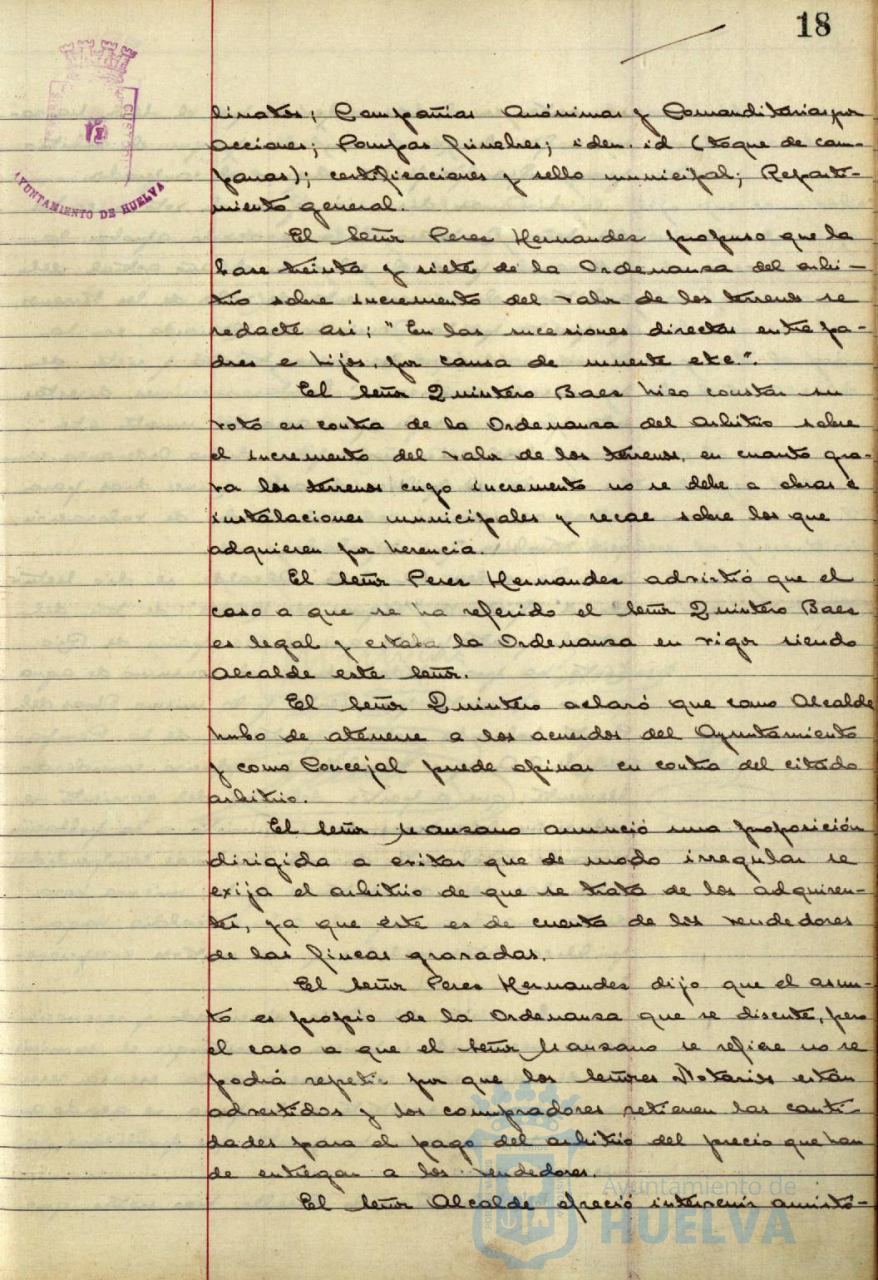 18
AYUNTAMIENTO DE HUELVA
linatos; Compañias Anónimas y Comanditarias por
acciones; Pompas fúnebres; iden. id (toque de cam-
panas); certificaciones y sello municipal; Reparti-
miento general.
El señor Peres Hernandes propuso que la
base treinta y siete de la Ordenansa del arbi-
trio sobre incremento del valor de los terrenos se
redacte asi; "En las sucesiones directas entre pa-
dres e hijos, por causa de muerte etc.".
El señor Quintero Baes hiso constar su
voto en contra de la Ordenansa del arbitrio sobre
el incremento del valor de los terrenos, en cuanto gra-
va los terrenos cuyo incremento no se debe a obras e
instalaciones municipales y recae sobre los que
adquieren por herencia.
El señor Peres Hernandes advirtió que el
caso a que se ha referido el señor Quintero Baes
es legal y estaba la Ordenansa en vigor siendo
Alcalde este señor.
El señor Quintero aclaró que como Alcalde
hubo de atenerse a los acuerdos del Ayuntamiento
y como Concejal puede opinar en contra del citado
arbitrio.
El señor Mansano anunció una proposición
dirigida a evitar que de modo irregular se
exija el arbitrio de que se trata de los adquiren-
tes, ya que éste es de cuenta de los vendedores
de las fincas gravadas.
El señor Peres Hernandes dijo que el asun-
to es propio de la Ordenansa que se discute, pero
el caso a que el señor Mansano se refiere no se
podrá repetir por que los señores Notarios están
advertidos y los compradores retienen las canti-
dades para el pago del arbitrio del precio que han
de entregar a los vendedores.
El señor Alcalde ofreció intervenir amisto-
Ayuntamiento de
HUELVA